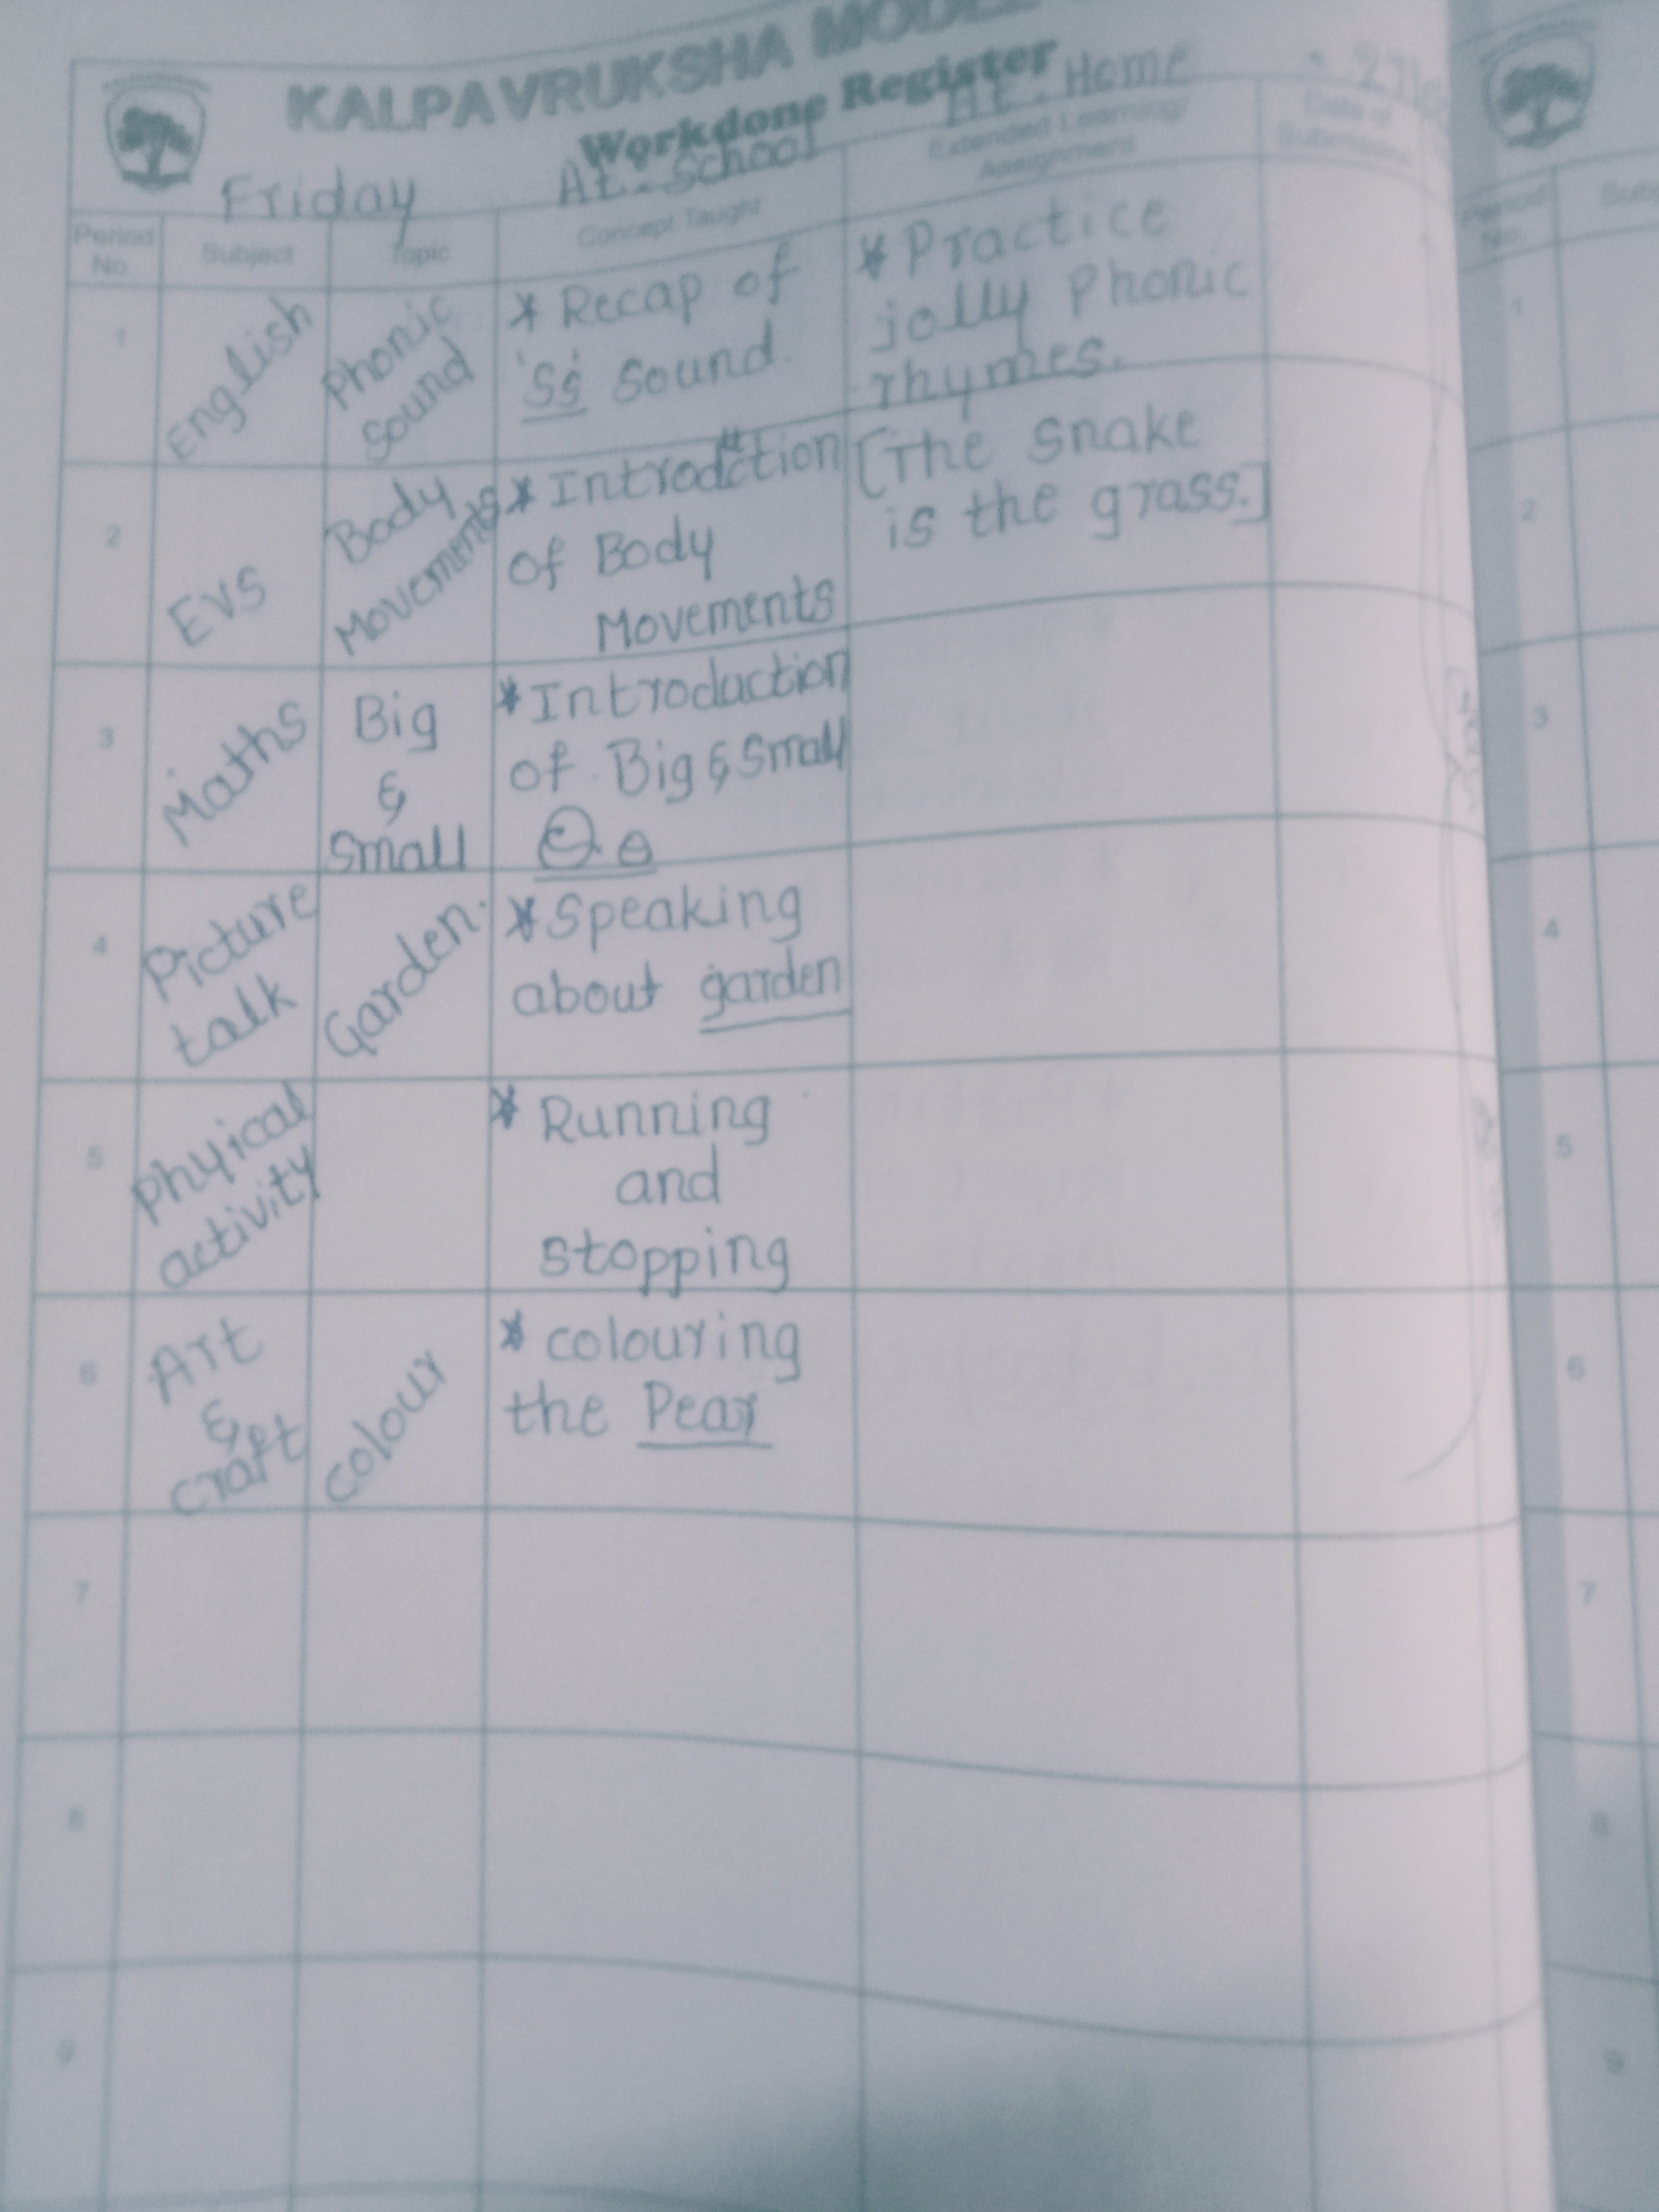 KALPAVRUKSHA MODEL
Workdone Register
Friday
At. School
At. Home
Period No.
Subject
Topic
Concept Taught
Extended Learning/
Assignment
Date of
Submission
1
English
Phonic
Sound
* Recap of
'Ss' Sound.
* Practice
jolly Phonic
rhymes.
[The Snake
is the grass.]
2
EVS
Body
Movements
* Introduction
of Body
Movements
3
Maths
Big
&
Small
* Introduction
of Big & Small
4
Picture
talk
Garden.
* Speaking
about garden
5
Phyical
activity
* Running
and
stopping
6
Art
&
craft
colour
* colouring
the Pear
7
8
9
Period
No.
1
2
3
4
5
6
7
8
9